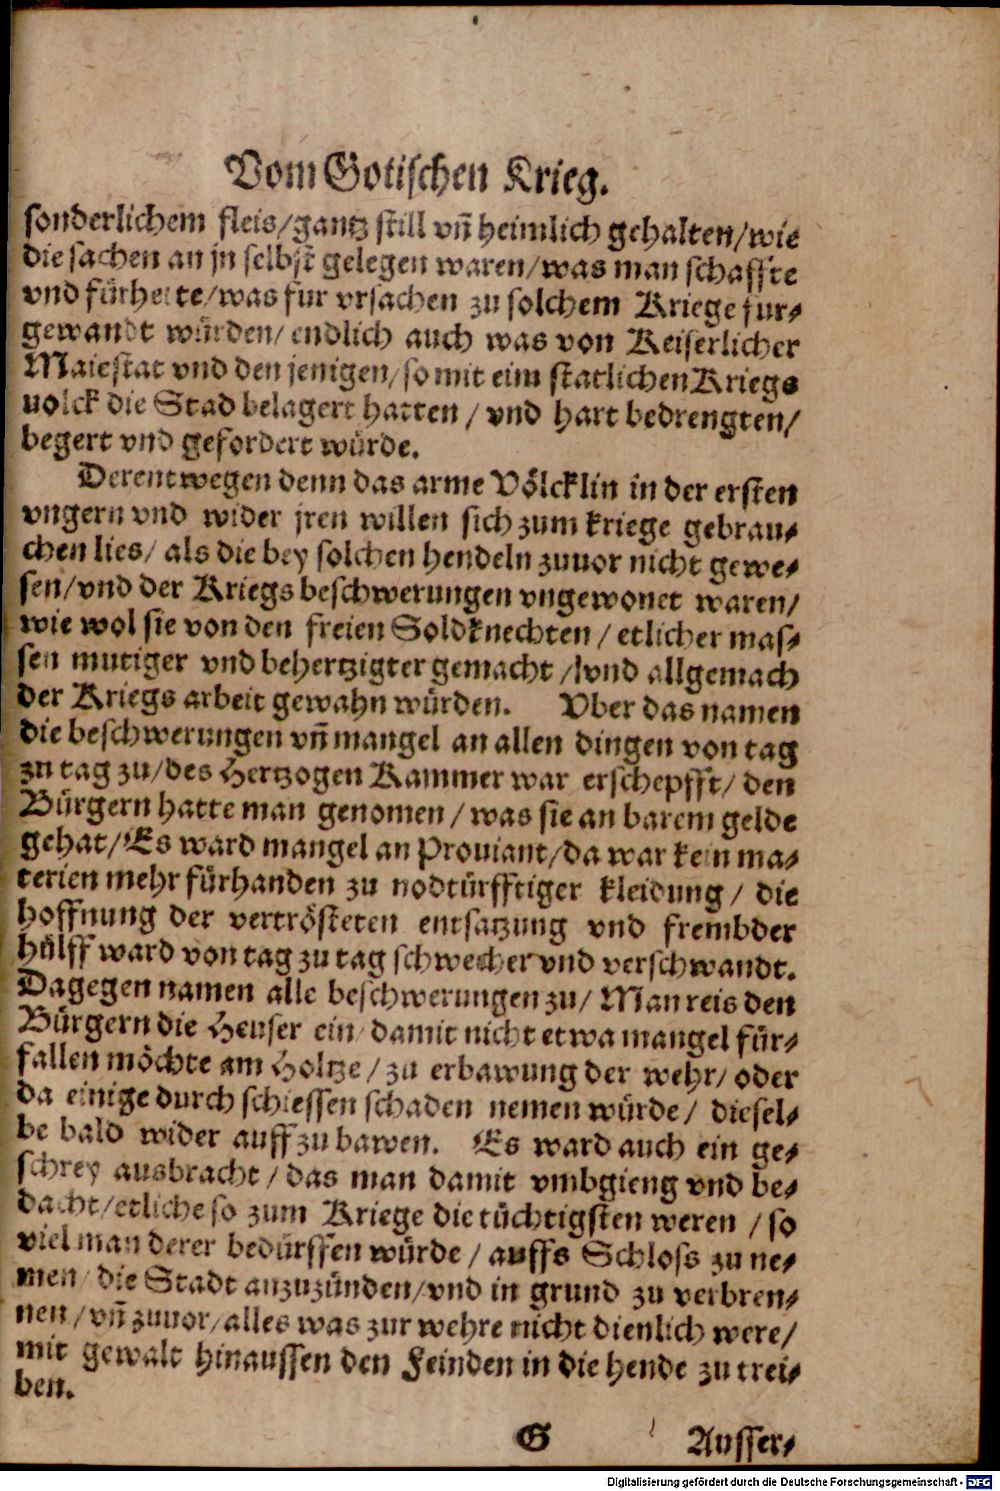 Vom Gotischen Krieg.
sonderlichem fleis/gantz still vñ heimlich gehalten/wie
die sachen an jn selbst gelegen waren/was man schaffte
vnd fürhette/was fur vrsachen zu solchem Kriege fur-
gewandt würden/endlich auch was von Keiserlicher
Maiestat vnd den jenigen/so mit eim statlichen Kriegs
uolck die Stad belagert hatten/vnd hart bedrengten/
begert vnd gefordert würde.
Derentwegen denn das arme Völcklin in der ersten
vngern vnd wider jren willen sich zum kriege gebrau-
chen lies/als die bey solchen hendeln zuuor nicht gewe-
sen/vnd der Kriegs beschwerungen vngewonet waren/
wie wol sie von den freien Soldknechten/etlicher mas-
sen mutiger vnd behertzigter gemacht/vnd allgemach
der Kriegs arbeit gewahn würden. Vber das namen
die beschwerungen vñ mangel an allen dingen von tag
zu tag zu/des Hertzogen Kammer war erschepfft/den
Bürgern hatte man genomen/was sie an barem gelde
gehat/Es ward mangel an Prouiant/da war kein ma-
terien mehr fürhanden zu nodtürfftiger kleidung/die
hoffnung der vertrösteten entsatzung vnd frembder
hülff ward von tag zu tag schwecher vnd verschwandt.
Dagegen namen alle beschwerungen zu/Man reis den
Bürgern die Heuser ein/damit nicht etwa mangel für-
fallen möchte am Holtze/zu erbawung der wehr/oder
da einige durch schiessen schaden nemen würde/diesel-
be bald wider auff zu bawen. Es ward auch ein ge-
schrey ausbracht/das man damit vmbgieng vnd be-
dacht/etliche so zum Kriege die tüchtigsten weren/so
viel man derer bedürffen würde/auffs Schloss zu ne-
men/die Stadt anzuzünden/vnd in grund zu verbren-
nen/vñ zuuor/alles was zur wehre nicht dienlich were/
mit gewalt hinaussen den Feinden in die hende zu trei-
ben.
G Ausser-
Digitalisierung gefördert durch die Deutsche Forschungsgemeinschaft - DFG